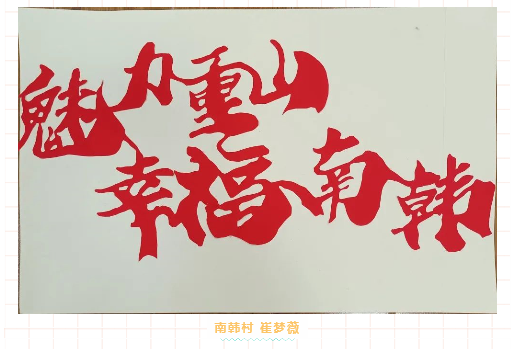 魅力重山
幸福南韩
南韩村 崔梦薇